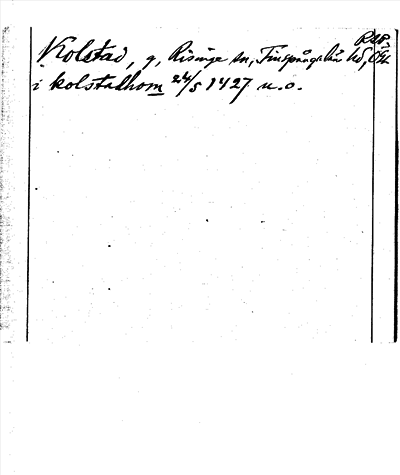 Kolstad, g, Risinge sn, Finspångalän hd, Ög.
i kolstadhom 24/5 1427 u.o.